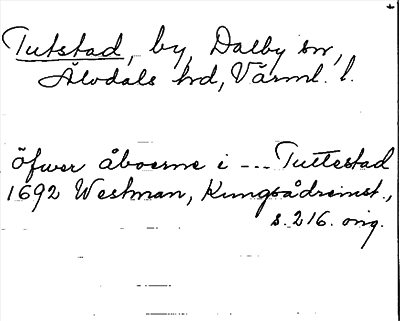 Tutstad, by, Dalby sn,
Älvdals hd, Värml. l.
öfwer åboerne i --- Tuttestad
1692 Westman, Kungsådreinst.,
s. 216. orig.